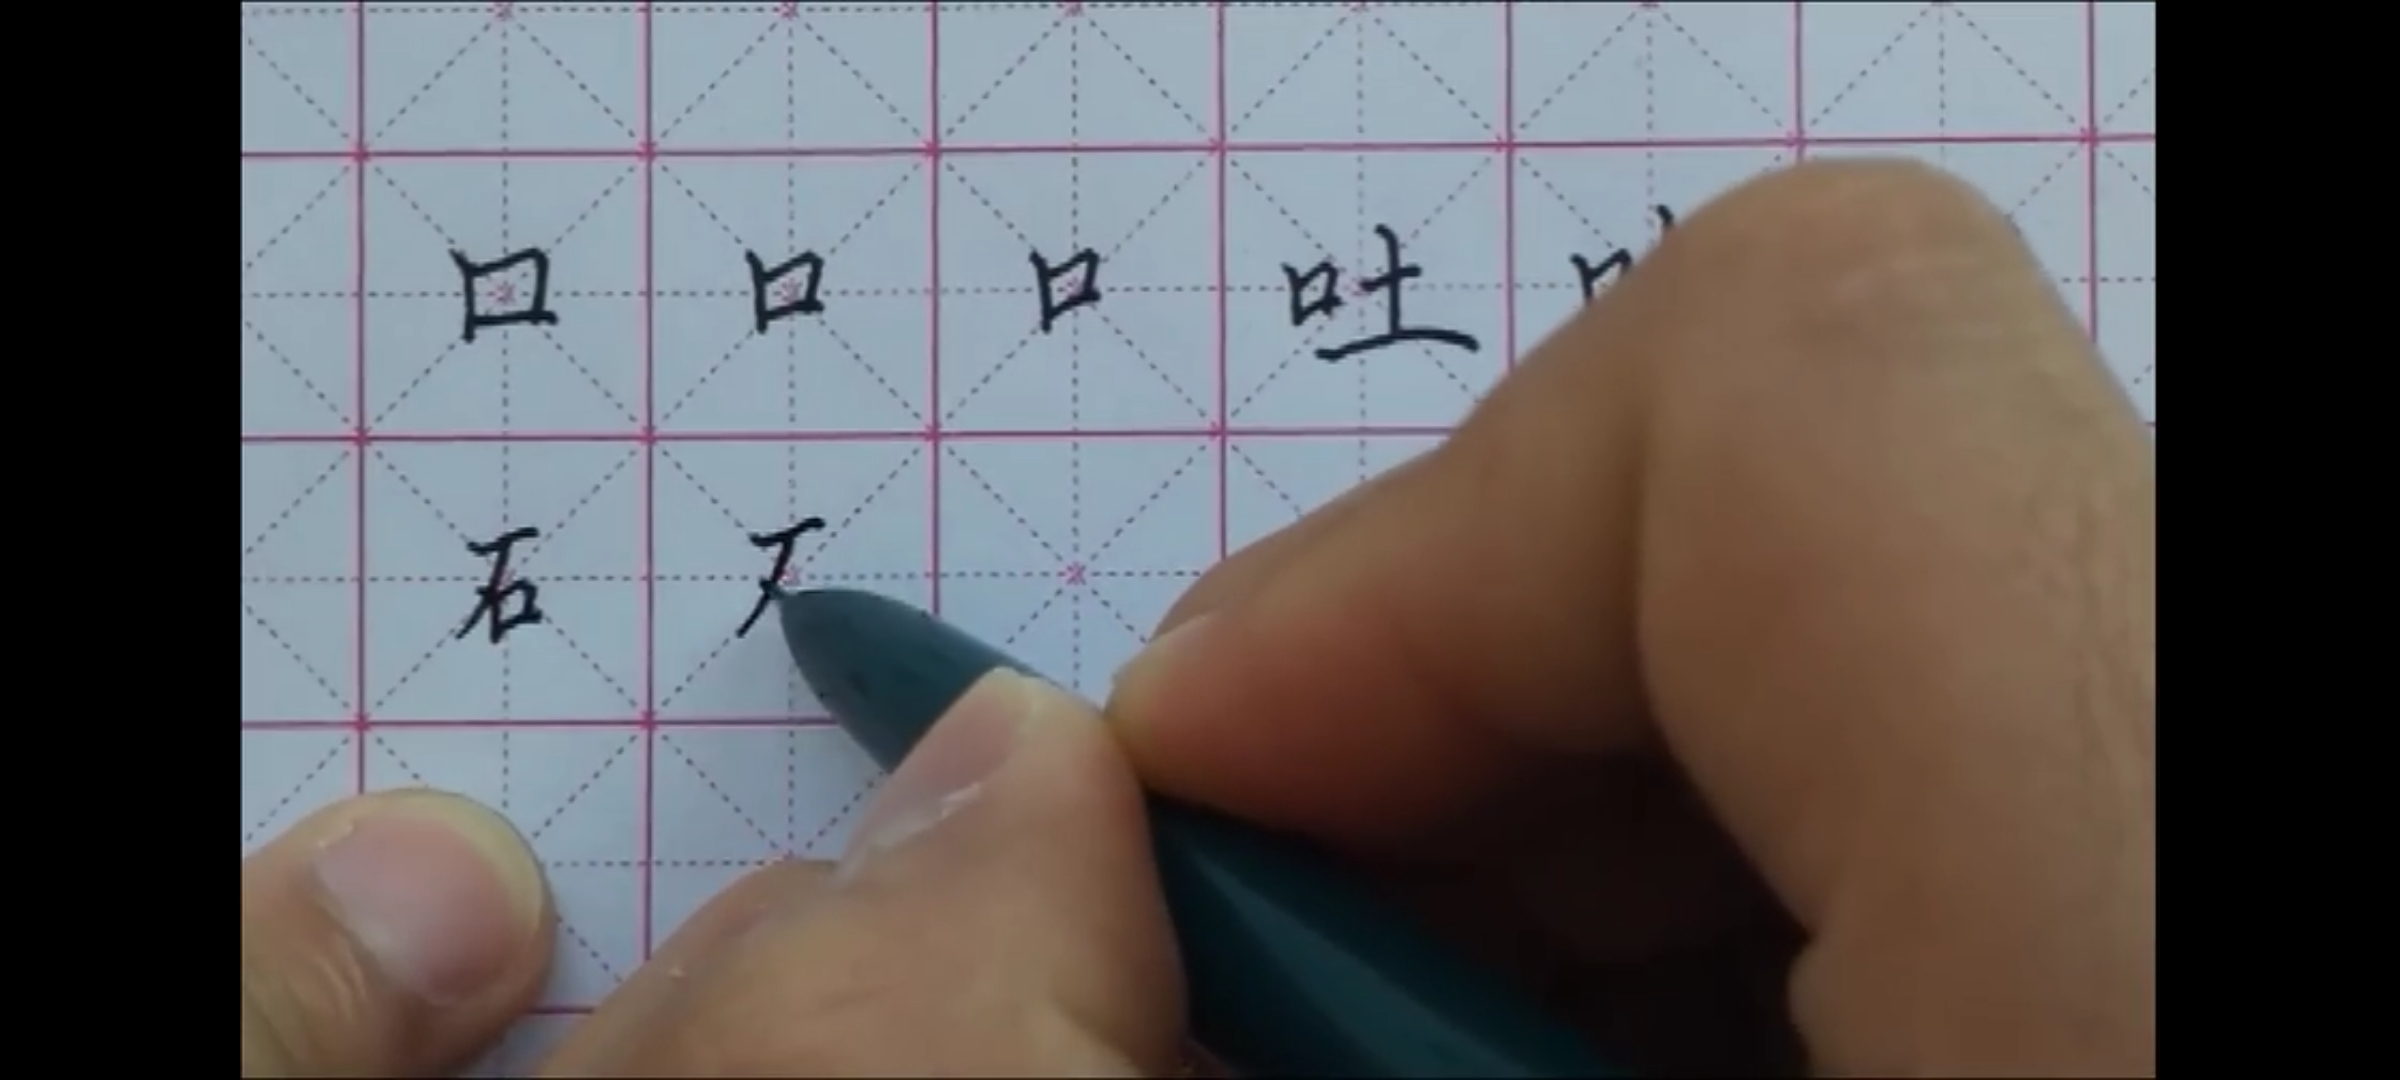 口 口 口 吐
石